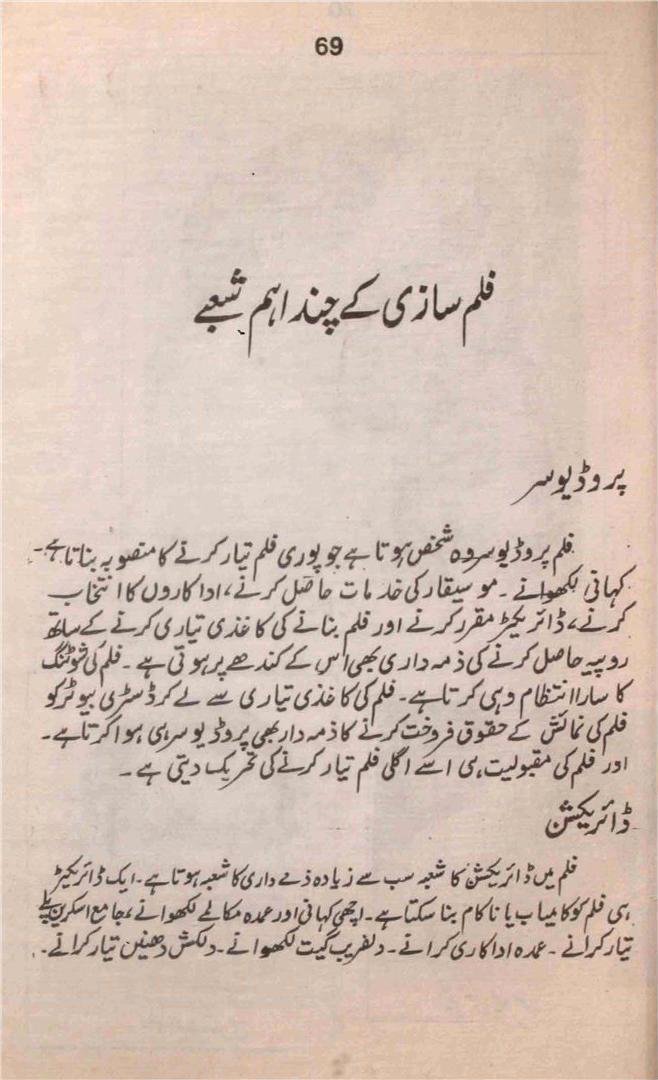 69
فلم سازی کے چند اہم شعبے
پروڈیوسر
فلم پروڈیوسر وہ شخص ہوتا ہے جو پوری فلم تیار کرنے کا منصوبہ بناتا ہے۔
کہانی لکھوانے۔ موسیقار کی خدمات حاصل کرنے، اداکاروں کا انتخاب
کرنے، ڈائریکٹر مقرر کرنے اور فلم بنانے کی کاغذی تیاری کرنے کے ساتھ
روپیہ حاصل کرنے کی ذمہ داری بھی اس کے کندھے پر ہوتی ہے۔ فلم کی شوٹنگ
کا سارا انتظام وہی کرتا ہے۔ فلم کی کاغذی تیاری سے لے کر ڈسٹری بیوٹر کو
فلم کی نمائش کے حقوق فروخت کرنے کا ذمہ دار بھی پروڈیوسر ہی ہوا کرتا ہے۔
اور فلم کی مقبولیت ہی اسے اگلی فلم تیار کرنے کی تحریک دیتی ہے۔
ڈائریکشن
فلم میں ڈائریکشن کا شعبہ سب سے زیادہ ذمے داری کا شعبہ ہوتا ہے۔ ایک ڈائریکٹر
ہی فلم کو کامیاب یا ناکام بنا سکتا ہے۔ اچھی کہانی اور عمدہ مکالمے لکھوانے، جامع اسکرین پلے
تیار کرانے۔ عمدہ اداکاری کرانے۔ دلفریب گیت لکھوانے۔ دلکش دھنیں تیار کرانے۔